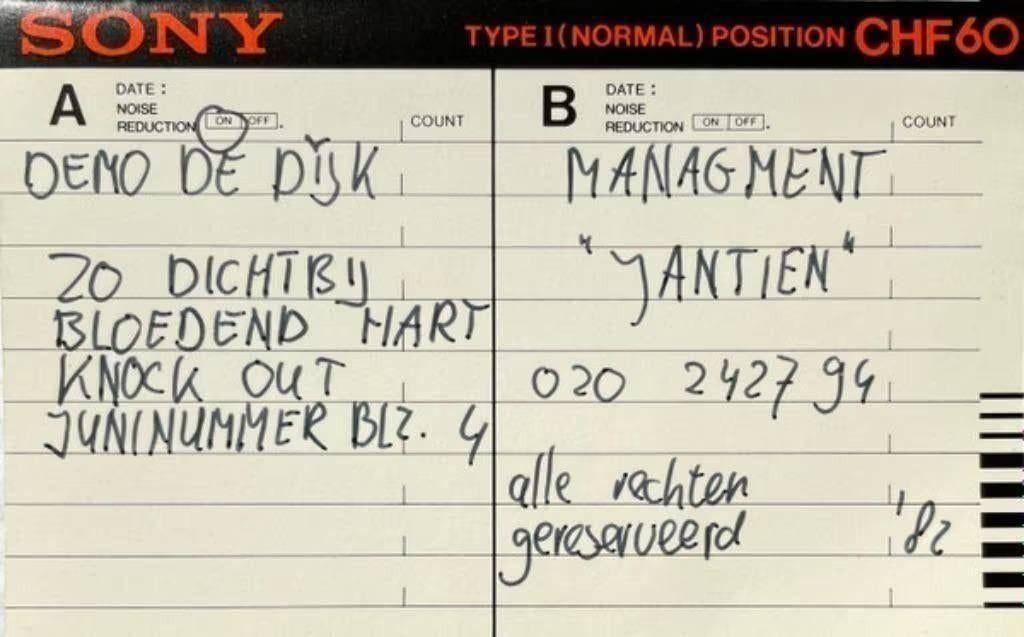 SONY TYPE I (NORMAL) POSITION CHF60
A DATE :
NOISE
REDUCTION ON OFF . COUNT
DEMO DE DIJK
ZO DICHTBIJ
BLOEDEND HART
KNOCK OUT
JUNINUMMER BLZ. 4
B DATE :
NOISE
REDUCTION ON OFF . COUNT
MANAGMENT
"JANTIEN"
020 242794
alle rechten
gereserveerd '82